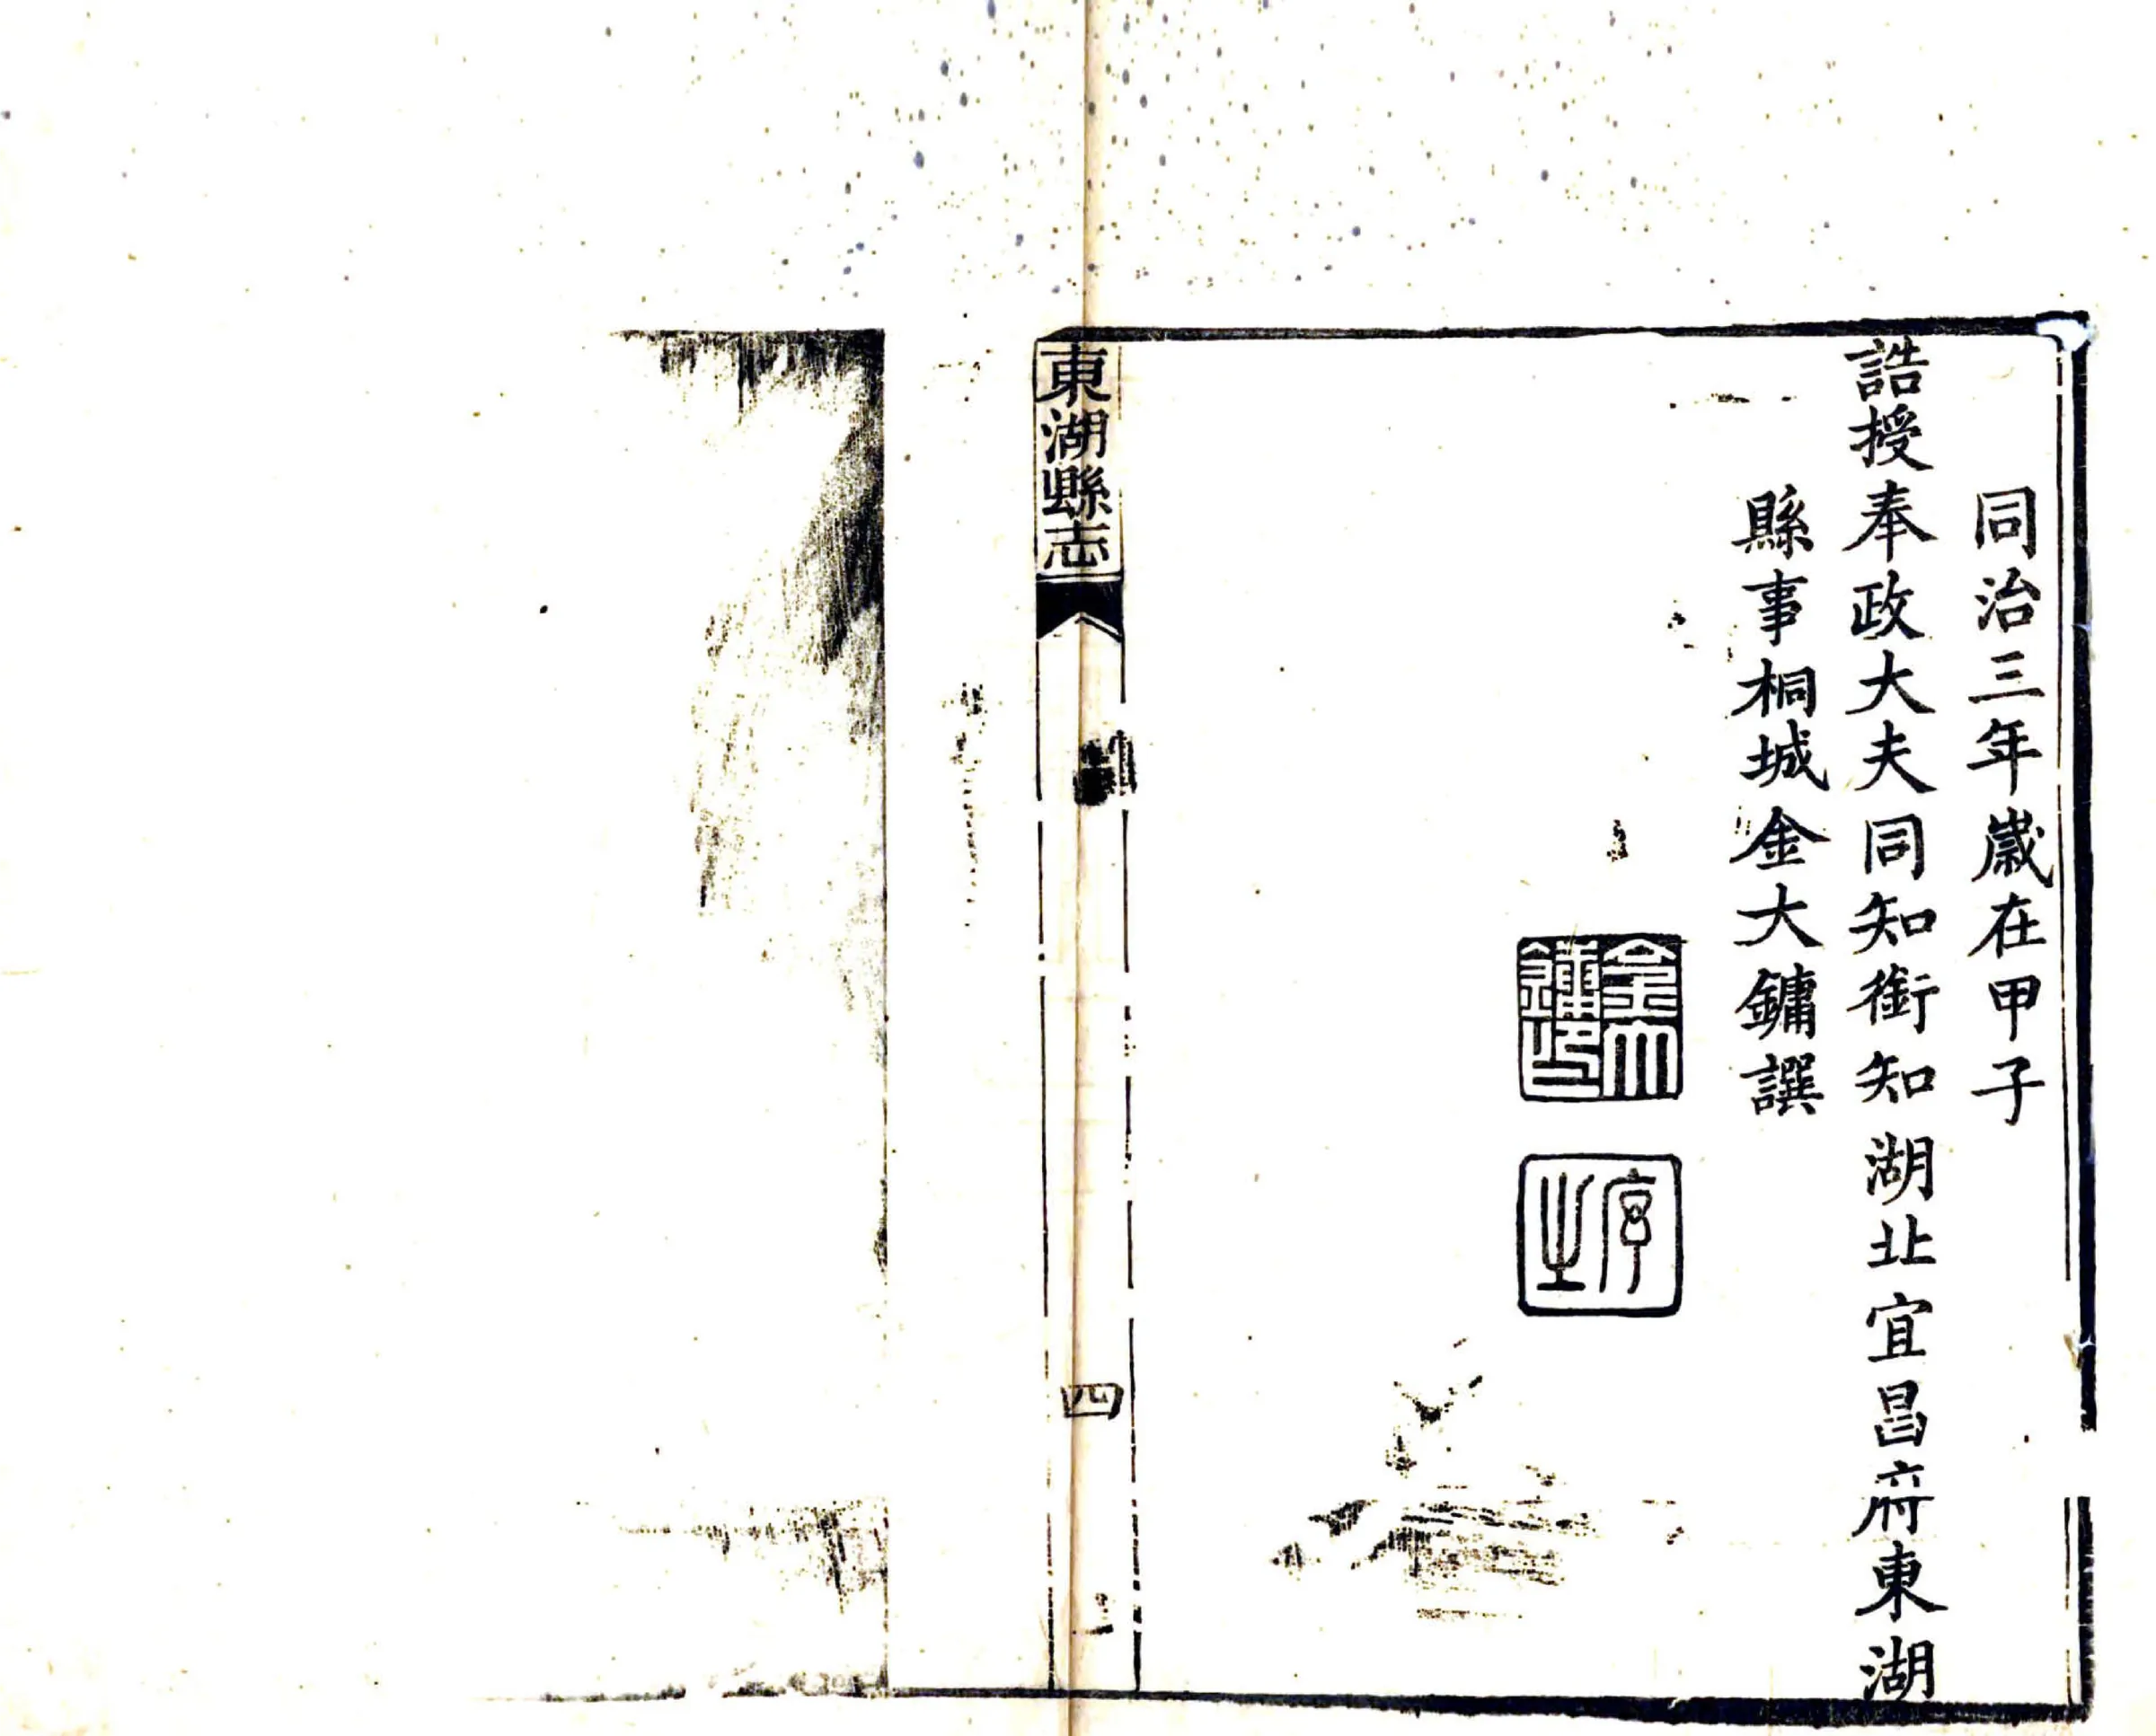 同治三年歲在甲子
誥授奉政大夫同知銜知湖北宜昌府東湖
縣事桐城金大鏞譔
金大
鏞印
東湖縣志
四